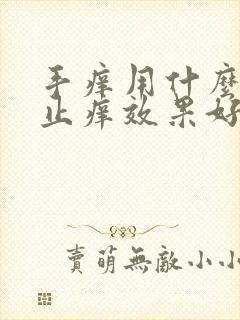 手痒用什麼
止痒效果好
賣萌無敵小小